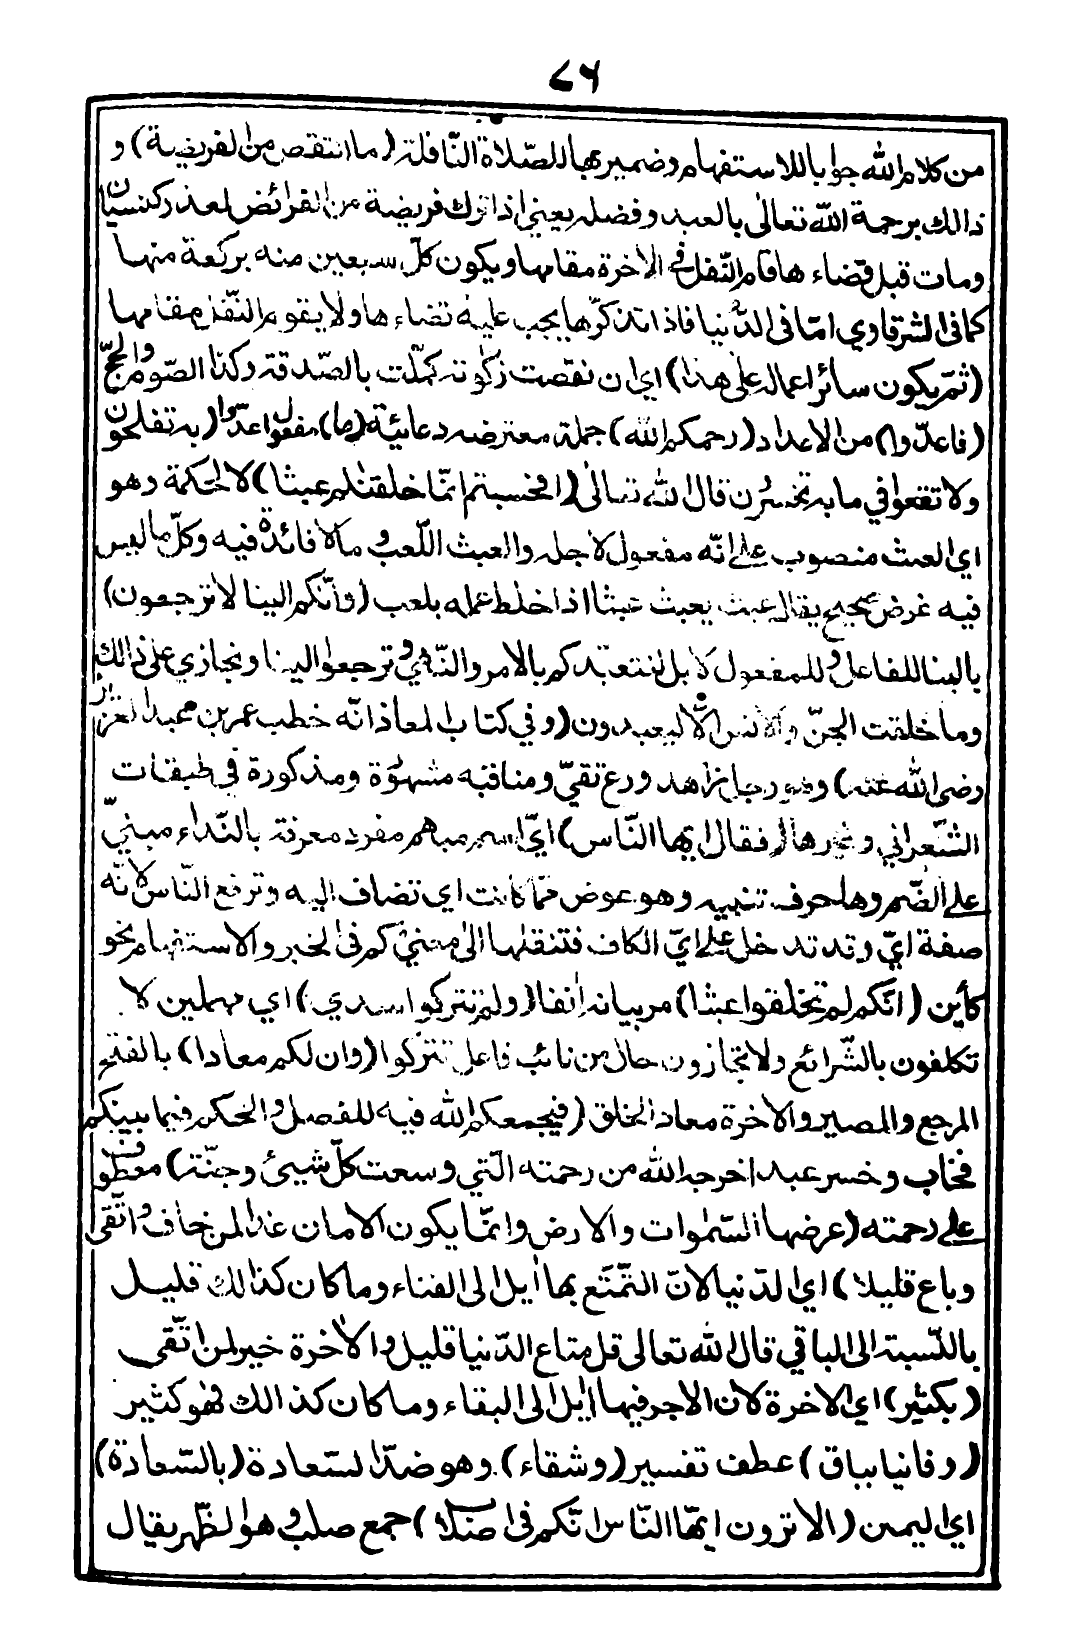 ٧٦
من كلام الله جوابا للاستفهام وضمير بها للصّلاة النّافلة (ما انتقص من الفريضة) و
ذالك برحمة الله تعالى بالعبد وفضله يعني اذا ترك فريضة من الفرائض لعذر كنسيان
ومات قبل قضاء ها قام النّفل في الأخرة مقامها ويكون كلّ سبعين منه بركعة منها
كما في الشرقاوي امّا في الدّنيا فاذا تذكّرها يجب عليه قضاء ها ولا يقوم النّفل مقامها
(ثمّ يكون سائر اعماله على هذا) اي ان نقصت زكوته كمّلت بالصّدقة وكذا الصّوم والحجّ
(فاعدّوا) من الاعداد (رحمكم الله) جملة معترضه دعائيّة (ما) مفعول اعدّوا (به تفلحون
ولا تقعوا في ما به تخسرُن قال الله تعالى (افحسبتم انّما خلقنٰكم عبثا) لا لحكمة وهو
اي العبث منصوب على انّه مفعول لاجله والعبث اللّعب و مالا فائدة فيه وكلّ ما ليس
فيه غرض صحيح يقال عبث يعبث عبثا اذا خلط عمله بلعب (وأنّكم الينا لا ترجعون)
بالبنا للفاعل و للمفعول لا بل لنتعبّدكم بالامر والنّهي و ترجعوا الينا ونجازي على ذالك
وما خلقت الجنّ والانس الّا ليعبدون (وفي كتاب المعاذ انّه خطب عمر بن عبد العزيز
رضى الله عنه) وهو رجل زاهد ورع تقيّ ومناقبه مشهوٗرة ومذكورة في طبقات
الشّعراني وغيرها (فقال ايّها النّاس) ايّ اسم مبهم مفرد معرفة بالنّداء مبنيّ
على الضّم وها حرف تنبيه وهو عوض ممّا كانت اي تضاف اليه وترفع النّاس لأنّه
صفة ايّ وقد تدخل على ايّ الكاف فتنقلها الى معنى كم في الخبر والاستفهام نحو
كأين (انّكم لم تخلقوا عبثا) مر بيانه اٰنفا (ولم تتركوا سدي) اي مهملين لا
تكلفون بالشّرائع ولا تجازون حال من نائب فاعل تتركوا (وان لكم معادا) بالفتح
المرجع والمصير والأخرة معاد الخلق (فيجمعكم الله فيه للفصل والحكم فيما بينكم
فخاب وخسر عبد اخرجه الله من رحمته الّتي وسعت كلّ شيئ وجنّة) معطوف
على رحمته (عرضها السّمٰوات والارض وانّما يكون الامان غدا لمن خاف و اتّقى
وباع قليلا) اي الدّنيا لانّ التّمتّع بها اٰيل الى الفناء وما كان كذالك قليل
بالنّسبة الى الباقي قال الله تعالى قل متاع الدّنيا قليل والأخرة خير لمن اتّقى
(بكثير) اي الاخرة لان الاجر فيها اٰيل الى البقاء وما كان كذالك فهو كثير
(وفانيا بباق) عطف تفسير (وشقاء) وهو ضدّ السّعادة (بالسّعادة)
اي اليمن (الا ترون ايّها النّاس انّكم في اصلاب) جمع صلب و هو الظّهر يقال